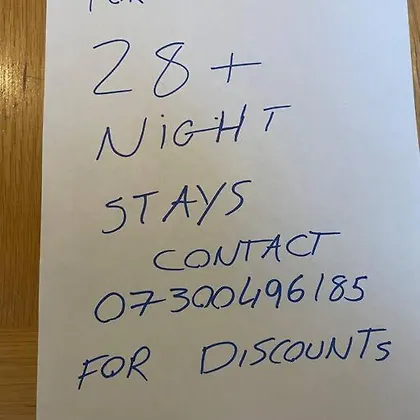 FOR
28+
NiGHT
STAYS
CONTACT
07300496185
FOR DISCOUNTS